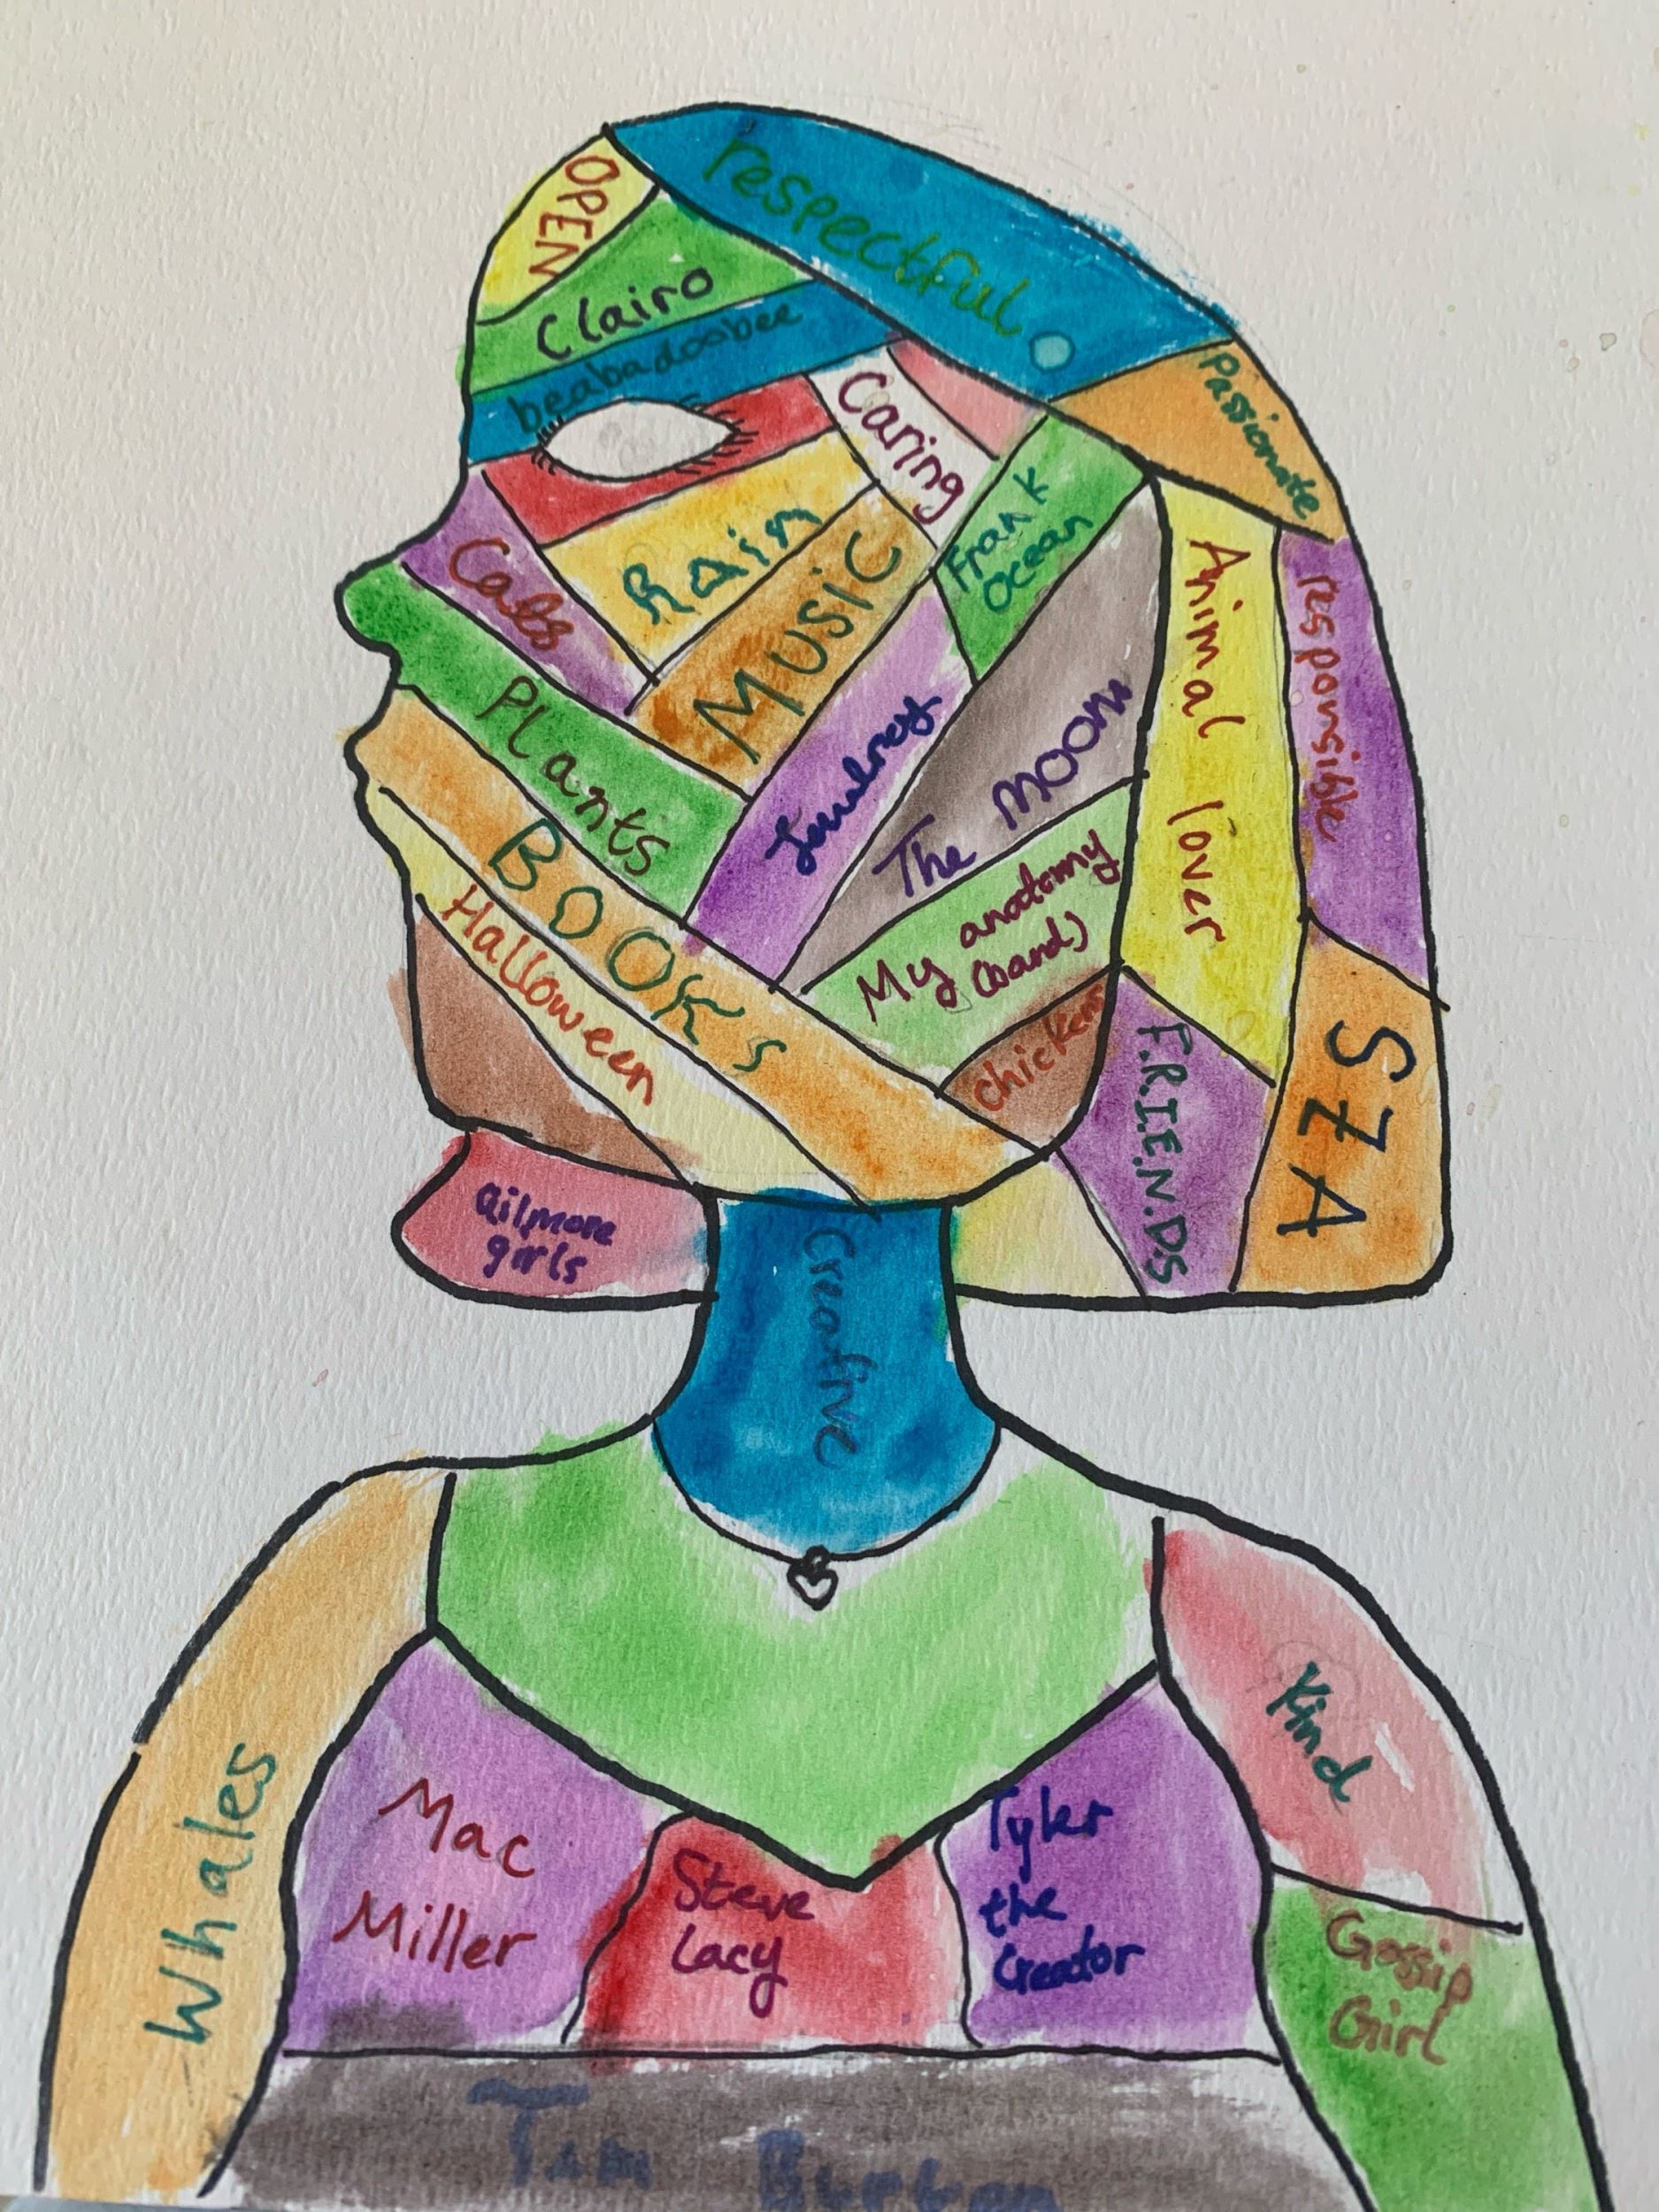 OPEN
respectful
Clairo
beabadoobee
Passionate
Caring
Frank
Ocean
Rain
Cats
MUSIC
Animal lover
responsible
Plants
Jewelrey
The moon
BOOKs
My anatomy
(band)
Halloween
chickens
F.R.I.E.N.D.S
SZA
Gilmore
girls
Creative
Kind
Whales
Mac
Miller
Steve
Lacy
Tyler
the
Creator
Gossip
Girl
Tim Burton